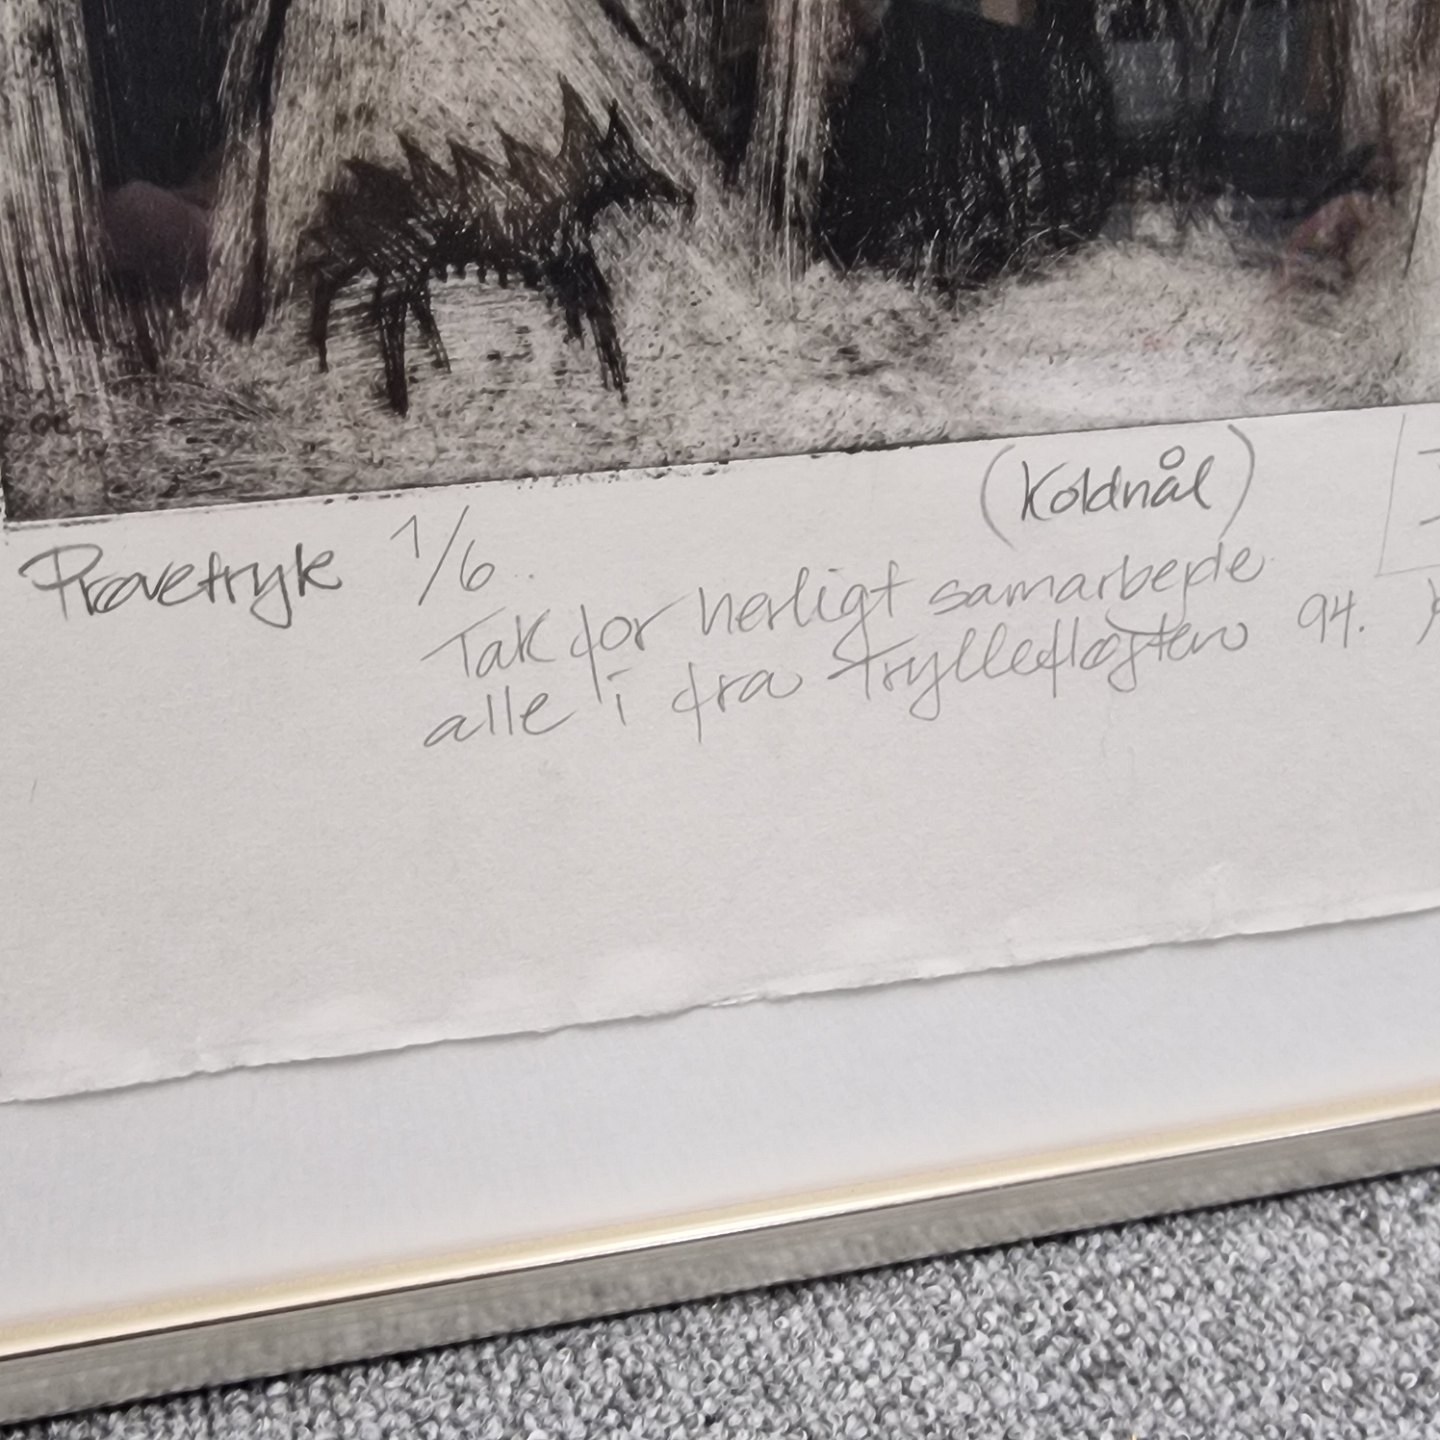 Prøvetryk 1/6. (Koldnål)
Tak for herligt samarbejde
alle i fra Tryllefløjten 94.